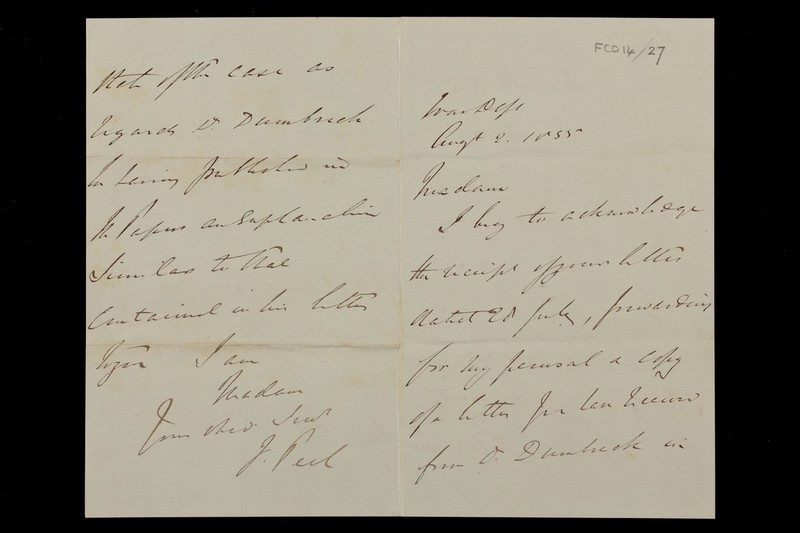 FCO14/27
War Dept
Augt 2. 1855
Madam
I beg to acknowledge
the receipt of your letter
dated 28 July, forwarding
for my perusal a copy
of a letter you have received
from Dr. Dumbreck in
of the case as
regards Dr. Dumbreck
having published in
the Papers an Explanation
Similar to that
Contained in his letter
to you I am
Madam
Your obed. Servt
F. Peel